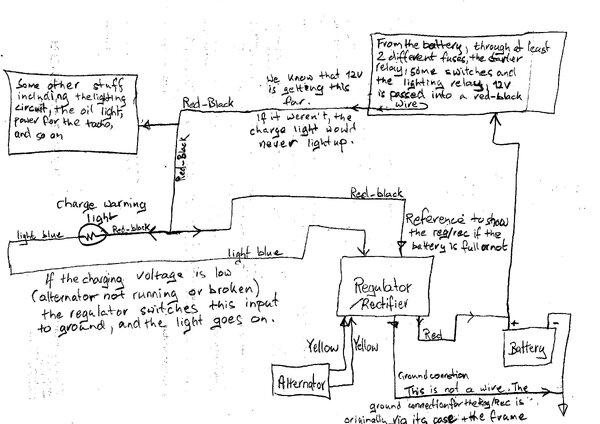 From the battery, through at least
2 different fuses, the starter
relay, some switches and
the lighting relay, 12V
is passed into a red-black
wire
Some other stuff
including the lighting
circuit, the oil light,
power for the tacho,
and so on
We know that 12V
is getting this
far.
If it weren't, the
charge light would
never light up.
Red-Black
Red-Black
Charge warning
light
Red-black
light blue
Red-black
light blue
Reference to show
the reg/rec if the
battery is full or not
If the charging voltage is low
(alternator not running or broken)
the regulator switches this input
to ground, and the light goes on.
Regulator
/Rectifier
Red
+
-
Battery
Yellow
Yellow
Alternator
Ground connection
This is not a wire. The
ground connection for the Reg/Rec is
originally via its case + the frame